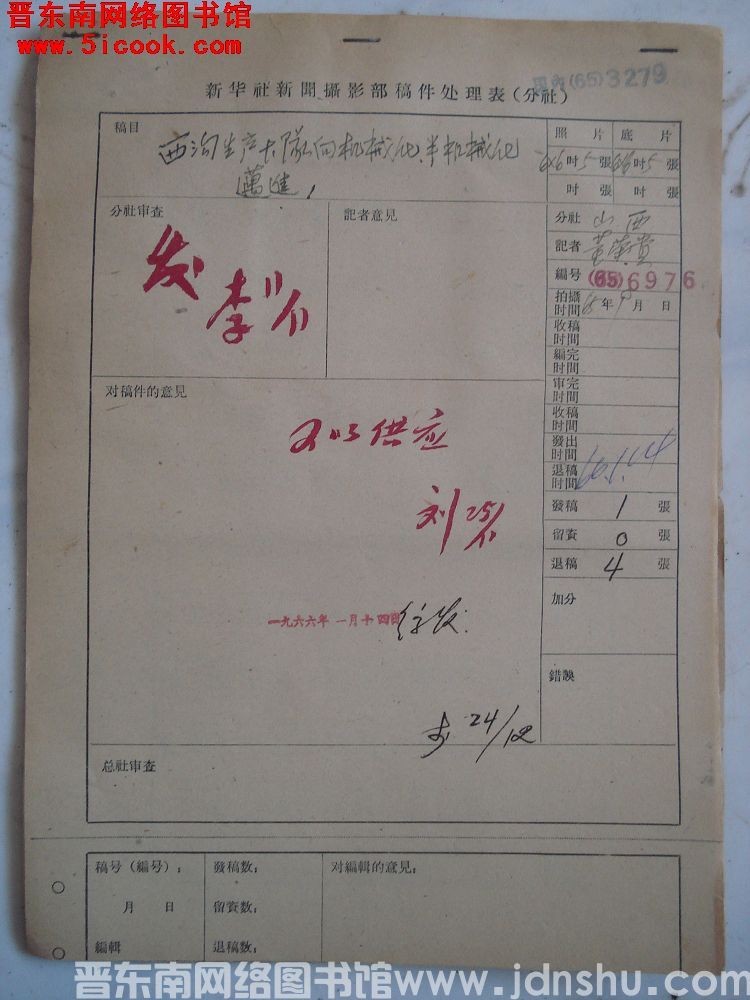 晋东南网络图书馆
www.5icook.com
国内(65)3279
新华社新聞攝影部稿件处理表(分社)
稿目
西沟生产大队向机械化、半机械化
邁进
照片 底片
6X6吋5張 6X6吋5張
吋 張 吋 張
分社审查
发
李
11/11
記者意見
分社 山西
記者 黃
編号 (65)6976
拍攝时間 65年9月 日
收稿时間
編完时間
审完时間
收稿时間
發出时間
退稿时間 66.1.14
發稿 1 張
留資 0 張
退稿 4 張
加分
錯誤
对稿件的意見
可以供应
刘
25/11
一九六六年一月十四日
24/12
总社审查
稿号(編号):
月 日
編輯
發稿数:
留資数:
退稿数:
对編輯的意見:
晋东南网络图书馆www.jdnshu.com